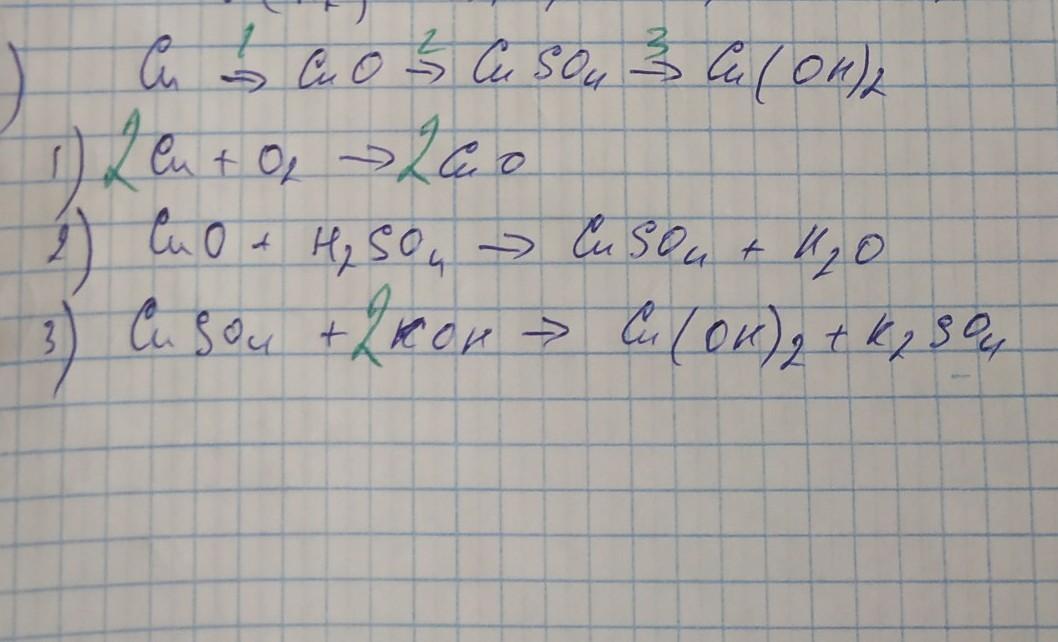 ) Cu 1→ CuO 2→ CuSO₄ 3→ Cu(OH)₂
1) 2Cu + O₂ → 2CuO
2) CuO + H₂SO₄ → CuSO₄ + H₂O
3) CuSO₄ + 2KOH → Cu(OH)₂ + K₂SO₄